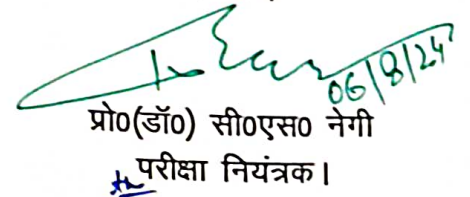 06/8/24
प्रो0(डॉ0) सी0एस0 नेगी
परीक्षा नियंत्रक।